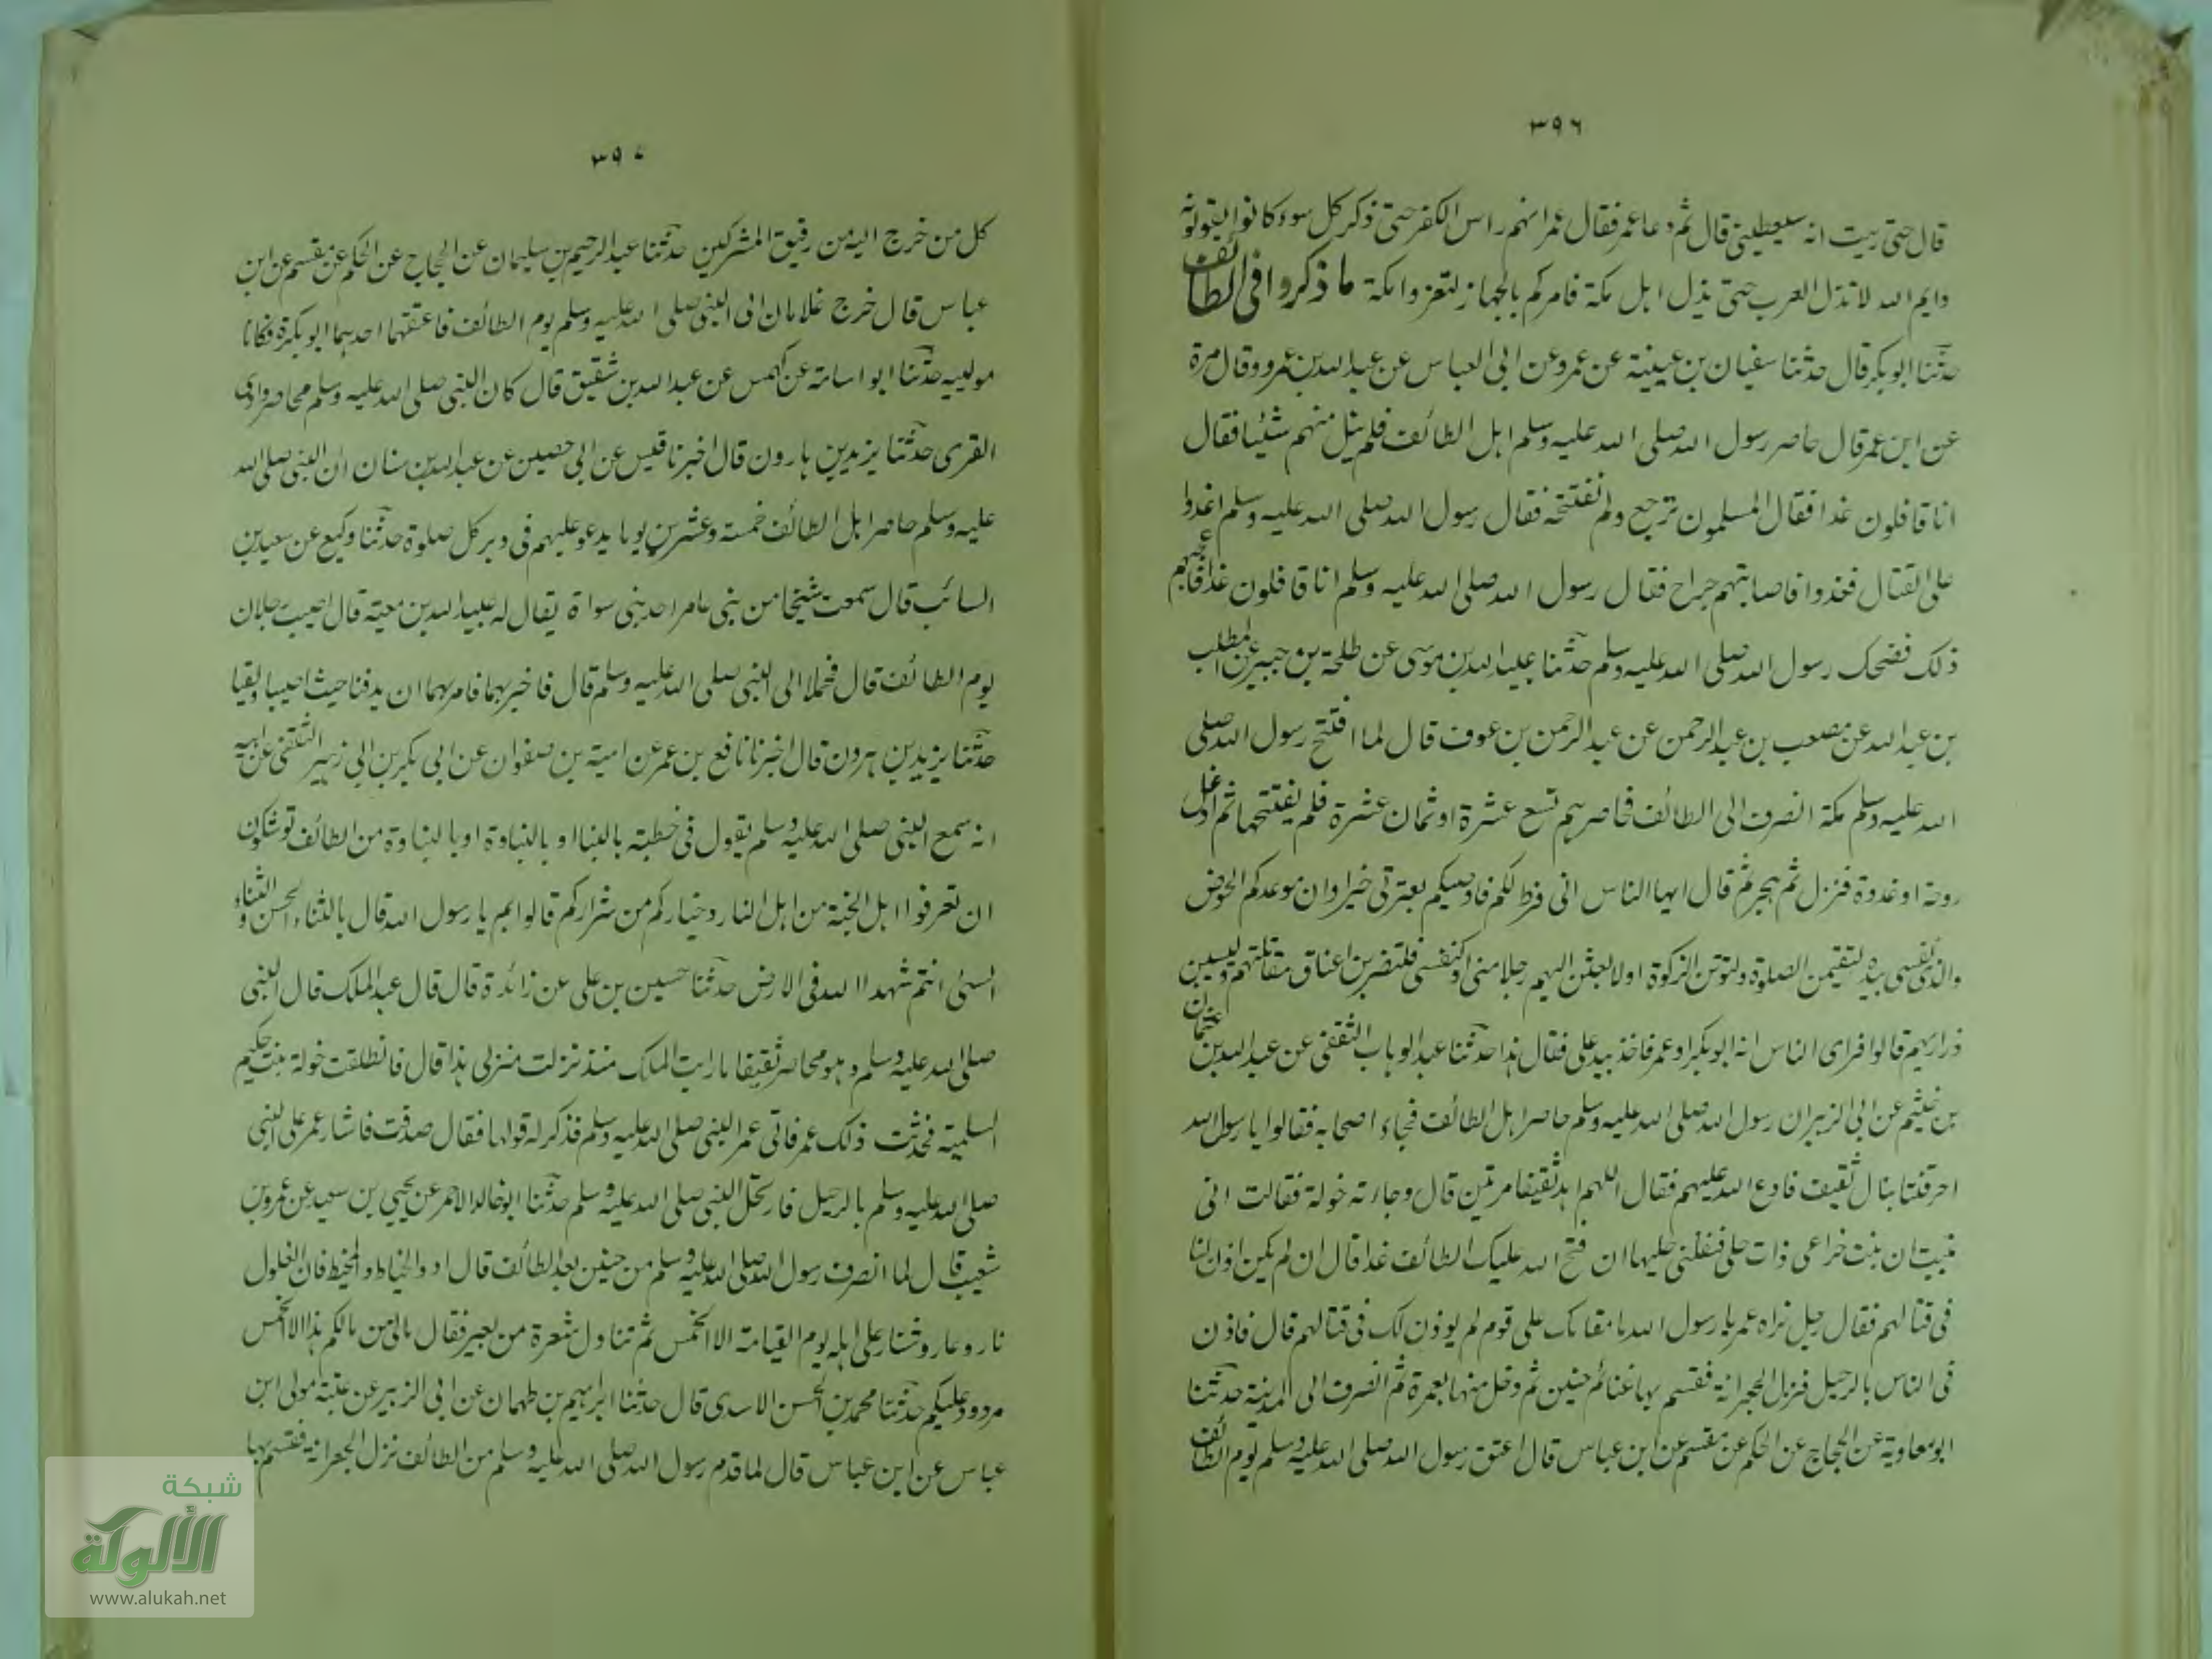 ٣٩٦
قال حتى ريت انه سيعطينى قال ثم دعا عمر فقال عمر انهم راس الكفر حتى ذكر كل سوء كانوا يقولونه
وايم الله لا تذل العرب حتى يذل اهل مكة فامركم بالجهاز لتغزوا مكة ما ذكروا فى الطائف
حدثنا ابو بكر قال حدثنا سفيان بن عيينة عن عمرو عن ابى العباس عن عبد الله بن عمرو وقال مرة
عن ابن عمر قال حاصر رسول الله صلى الله عليه وسلم اهل الطائف فلم ينل منهم شيئا فقال
انا قافلون غدا فقال المسلمون نرجع ولم نفتتحه فقال رسول الله صلى الله عليه وسلم اغدوا
على القتال فغدوا فاصابتهم جراح فقال رسول الله صلى الله عليه وسلم انا قافلون غدا فاعجبهم
ذلك فضحك رسول الله صلى الله عليه وسلم حدثنا عبيد الله بن موسى عن طلحة بن جبير عن المطلب
بن عبد الله عن مصعب بن عبد الرحمن عن عبد الرحمن بن عوف قال لما افتتح رسول الله صلى
الله عليه وسلم مكة انصرف الى الطائف فحاصرهم تسع عشرة او ثمان عشرة فلم يفتتحها ثم اوغل
روحة او غدوة فنزل ثم هجر ثم قال ايها الناس انى فرط لكم فاوصيكم بعترتى خيرا وان موعدكم الحوض
والذى نفسى بيده لتقيمن الصلوة ولتوتن الزكوة او لابعثن اليهم رجلا منى او كنفسى فلتضربن اعناق مقاتلتهم وليسبين
ذراريهم قالوا فراى الناس انه ابو بكر او عمر فاخذ بيد على فقال هذا حدثنا عبد الوهاب الثقفى عن عبد الله بن عثمان
بن خثيم عن ابى الزبير ان رسول الله صلى الله عليه وسلم حاصر اهل الطائف فجاء اصحابه فقالوا يا رسول الله
احرقتنا بنال ثقيف فادع الله عليهم فقال اللهم اهد ثقيفا مرتين قال وجاءته خولة فقالت انى
نبيت ان بنت خزاعى ذات حلى فنفلنى حليها ان فتح الله عليك الطائف غدا قال ان لم يكن اذن لنا
فى قتالهم فقال رجل نراه عمر يا رسول الله ما مقامك على قوم لم يوذن لك فى قتالهم قال فاذن
فى الناس بالرحيل فنزل الجعرانة فقسم بها غنائم حنين ثم دخل منها بعمرة ثم انصرف الى المدينة حدثنا
ابو معاوية عن الحجاج عن الحكم عن مقسم عن ابن عباس قال اعتق رسول الله صلى الله عليه وسلم يوم الطائف
٣٩٧
كل من خرج اليه من رقيق المشركين حدثنا عبد الرحيم بن سليمان عن الحجاج عن الحكم عن مقسم عن ابن
عباس قال خرج غلامان الى النبى صلى الله عليه وسلم يوم الطائف فاعتقهما احدهما ابو بكرة فكانا
مولييه حدثنا ابو اسامة عن كهمس عن عبد الله بن شقيق قال كان النبى صلى الله عليه وسلم محاصر وادى
القرى حدثنا يزيد بن هارون قال اخبرنا قيس عن ابى حصين عن عبد الله بن سنان ان النبى صلى الله
عليه وسلم حاصر اهل الطائف خمسة وعشرين يوما يدعو عليهم فى دبر كل صلوة حدثنا وكيع عن سعيد بن
السائب قال سمعت شيخا من بنى عامر احد بنى سواة يقال له عبيد الله بن معية قال اصيب رجلان
يوم الطائف قال فحملا الى النبى صلى الله عليه وسلم قال فاخبر بهما فامر بهما ان يدفنا حيث اصيبا ولقيا
حدثنا يزيد بن هرون قال اخبرنا نافع بن عمر عن امية بن صفوان عن ابى بكر بن ابى زهير الثقفى عن ابيه
انه سمع النبى صلى الله عليه وسلم يقول فى خطبته بالنبا او بالنباوة او بالنباوة من الطائف توشكون
ان تعرفوا اهل الجنة من اهل النار وخياركم من شراركم قالوا بم يا رسول الله قال بالثناء الحسن والثناء
السئى انتم شهداا الله فى الارض حدثنا حسين بن على عن زائدة قال قال عبد الملك قال النبى
صلى الله عليه وسلم وهو محاصر ثقيفا ما رايت الملك منذ نزلت منزلى هذا قال فانطلقت خولة بنت حكيم
السلمية فحدثت ذلك عمر فاتى عمر النبى صلى الله عليه وسلم فذكر له قولها فقال صدقت فاشار عمر على النبى
صلى الله عليه وسلم بالرحيل فارتحل النبى صلى الله عليه وسلم حدثنا ابو خالد الاحمر عن يحيى بن سعيد عن عمرو بن
شعيب قال لما انصرف رسول الله صلى الله عليه وسلم من حنين بعد الطائف قال ادوا الخياط والمخيط فان الغلول
نار وعار وشنار على اهله يوم القيامة الا الخمس ثم تناول شعرة من بعير فقال مالى من مالكم هذا الا الخمس
مردود عليكم حدثنا محمد بن الحسن الاسدى قال حدثنا ابراهيم بن طهمان عن ابى الزبير عن عتبة مولى ابن
عباس عن ابن عباس قال لما قدم رسول الله صلى الله عليه وسلم من الطائف نزل الجعرانة فقسم بها
شبكة
الألوكة
www.alukah.net